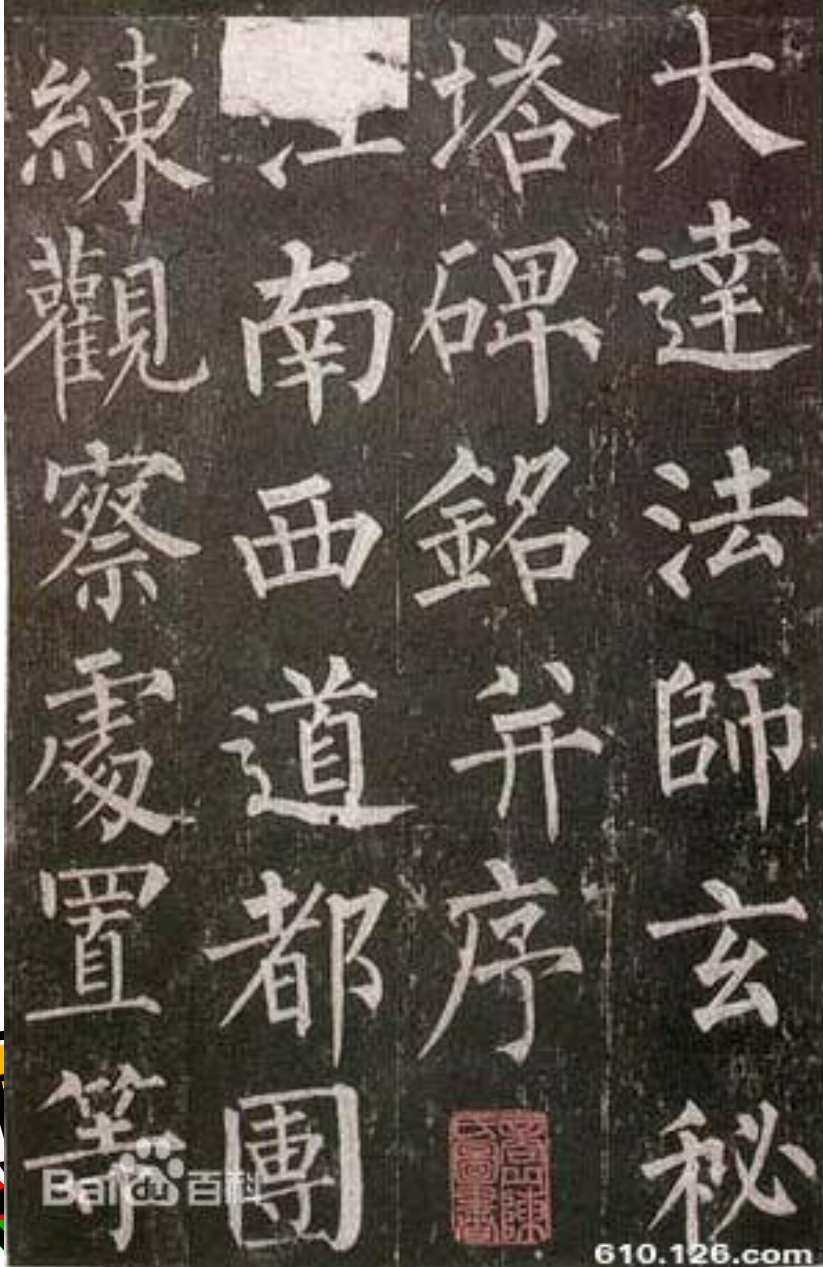 大達法師玄秘
塔碑銘并序
江南西道都團
練觀察處置等
Baidu百科
610.126.com